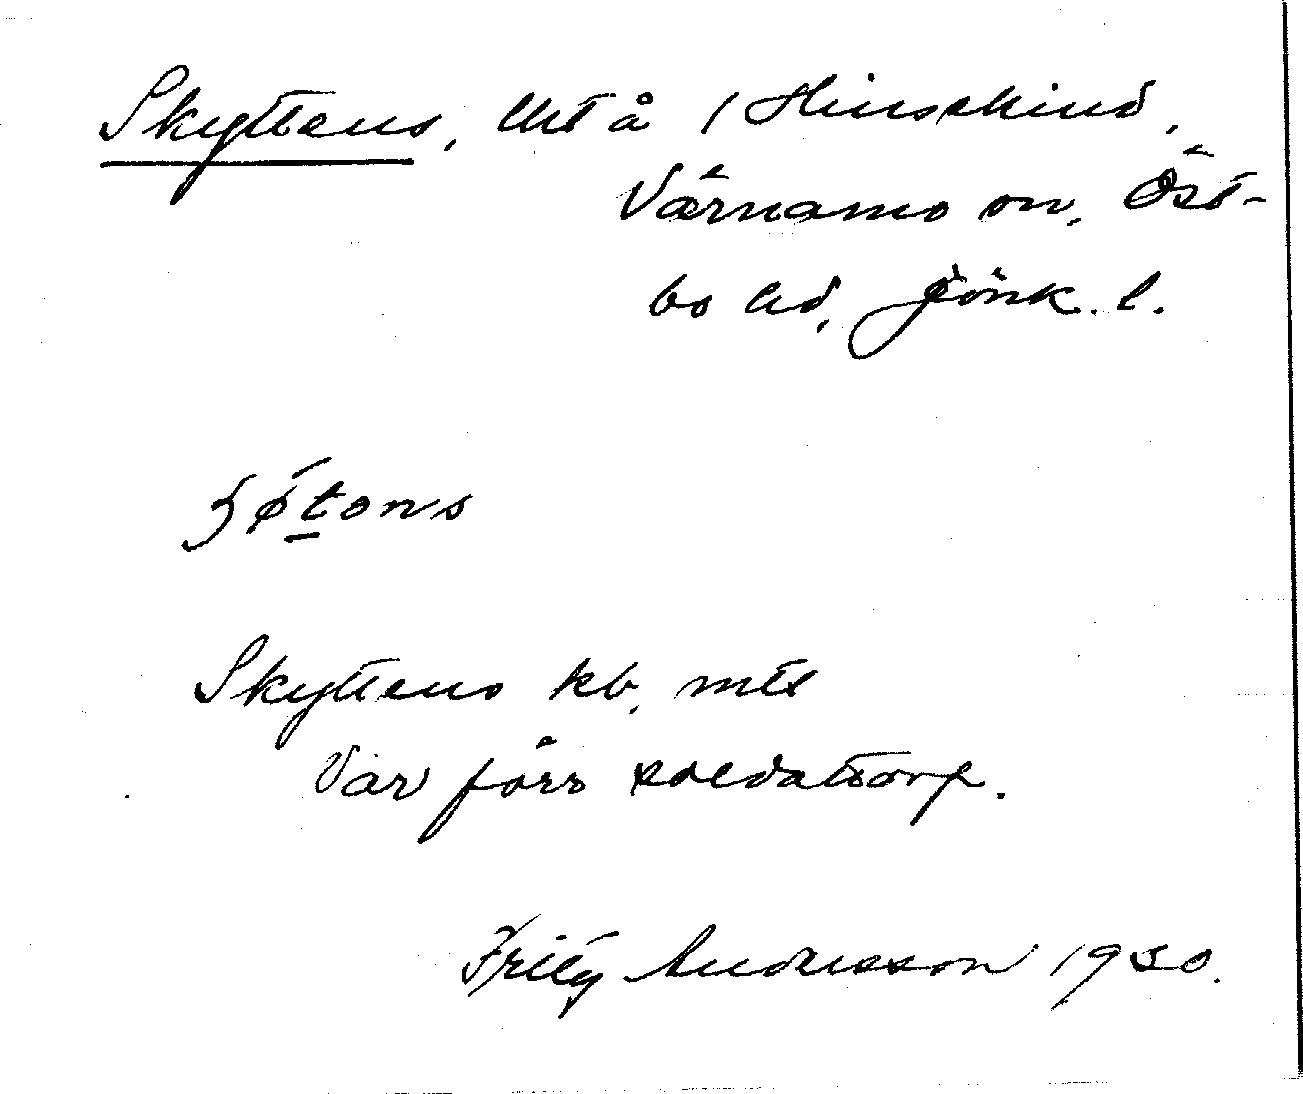 Skyttens, lht å 1 Hinsekind,
Värnamo sn, Öst-
bo hd, Jönk. l.
ʃǿtons
Skyttens kb, mtl
Var förr soldattorp.
Fritz Andersson 1930.